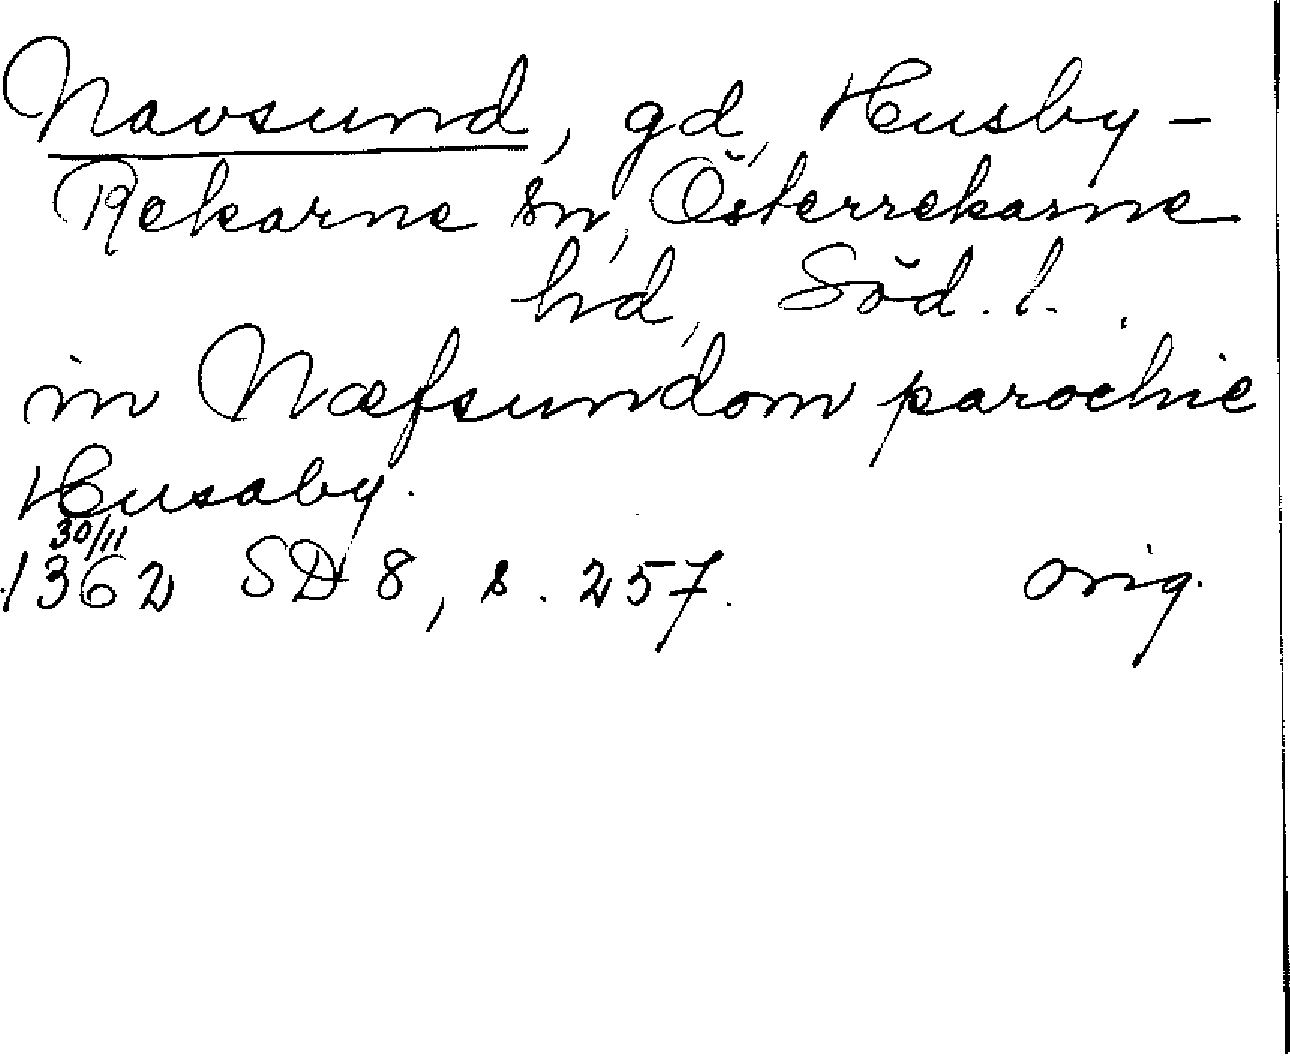 Navsund, gd, Husby-
Rekarne sn, Österrekarne
hd, Söd. l.
in Næfsundom parochie
Husaby.
30/11
1362 SD 8, s. 257. orig.